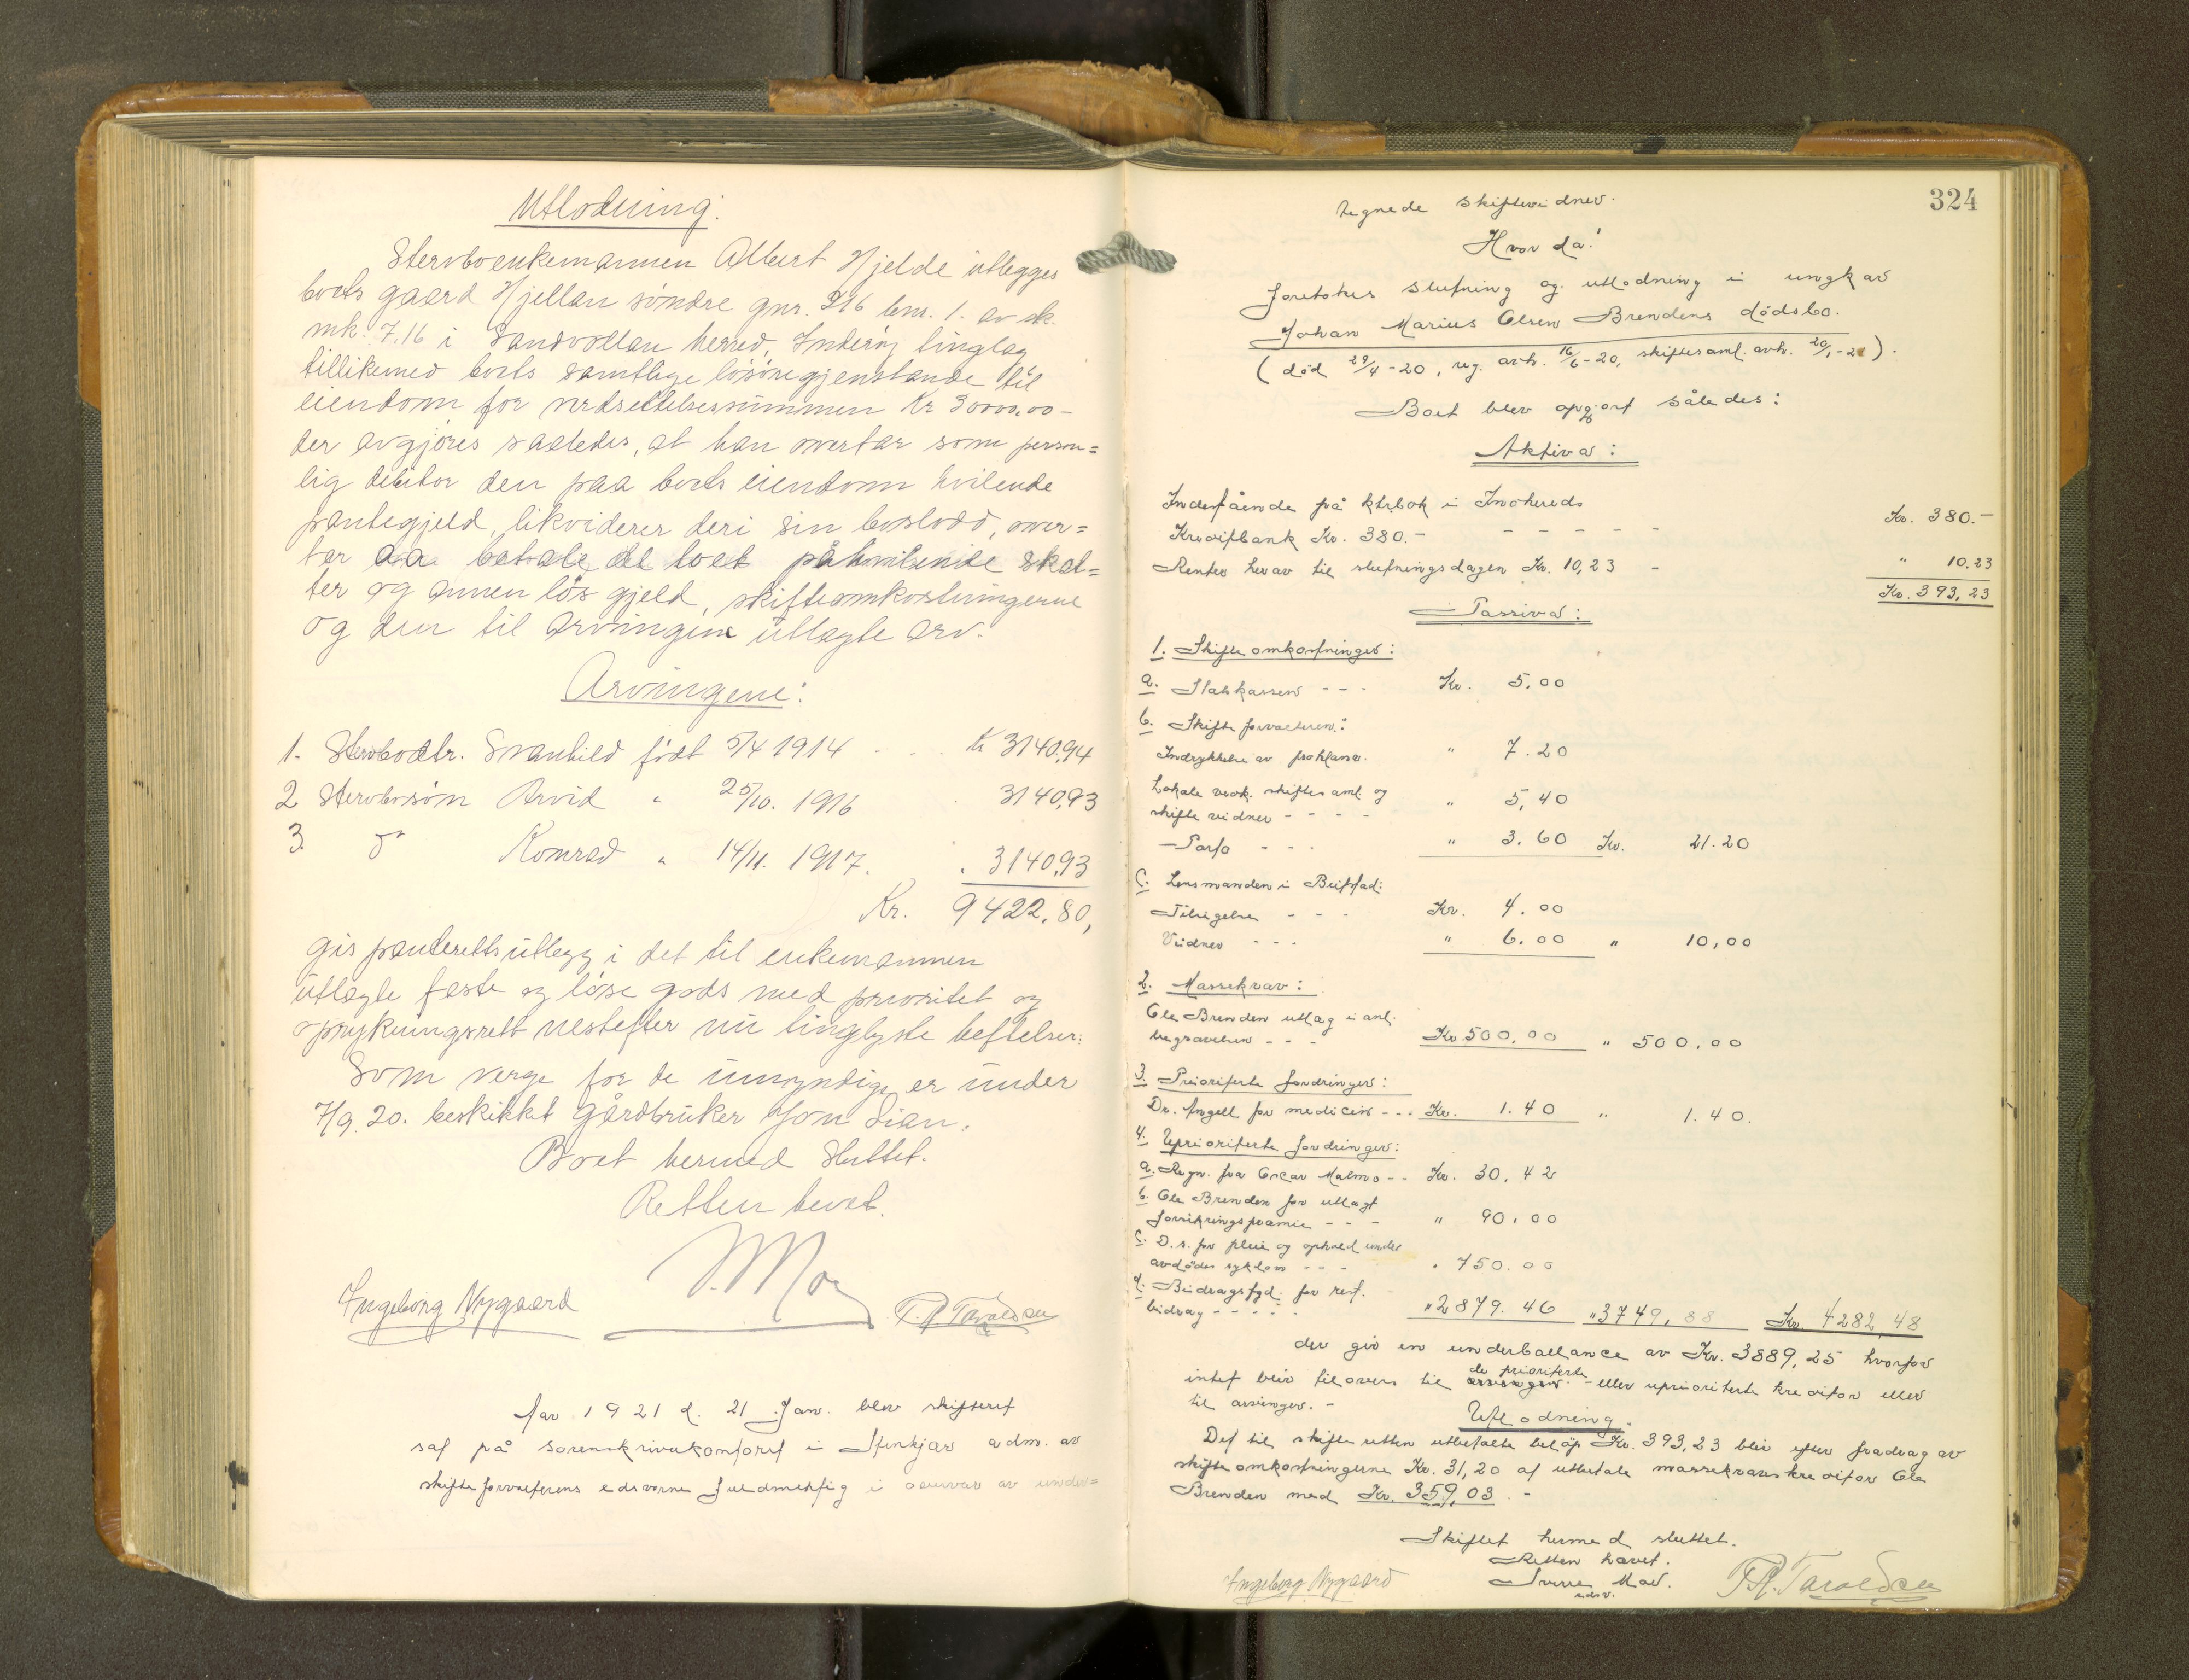 Utlodning.
Stervboenkemannen Albert Hjelde utlegges
boets gaard Hjellan söndre gnr. 216 bnr. 1. av sk.
mk. 7.16 i Sandvollan herred, Inderöy tinglag
tillikemed boets samtlige lösöregjenstande til
eiendom for verdsettelsessummen Kr 30000.00 -
der avgjöres saaledes, at han overtar som person=
lig debitor den paa boets eiendom hvilende
pantegjeld, likviderer deri sin boslodd, over=
tar aa betale de boet påhvilende skat=
ter og annen lös gjeld, skifteomkostningerne
og den til arvingene utlagte arv.
Arvingene:
1. Stervbodtr. Svanhild födt 5/4 1914 - - - Kr 3140,94
2 Stervbosön Arvid " 25/10. 1916 - 3140,93
3. do Konrad " 14/11. 1917. " 3140,93
Kr. 9422.80,
gis panterettsutlegg i det til enkemannen
utlagte faste og löse gods med prioritet og
oprykningsrett nestefter nu tinglyste heftelser.
Som verge for de umyndige er under
7/9. 20. beskikket gårdbruker Jon Lian.
Boet hermed sluttet.
Retten hevet.
Ingeborg Nygaard
T. R. Taraldsen
År 1921 d. 21 Jan. blev skifteret
sat på sorenskriverkontoret i Stenkjær adm. av
skifteforvalterens edsvorne fuldmektig i overvær av under=
324
tegnede skiftevidner.
Hvorda!
foretokes slutning og utlodning i ungkar
Johan Marius Olsen Brendens dödsbo.
(död 29/4-20, reg. avh. 16/6-20, skiftesaml. avh. 20/1-21).
Boet blev opgjort således:
Aktiva:
Indestående på ktrbok i Inchereds
Kreditbank Kr. 380.- - - - - - Kr. 380.-
Renter herav til slutningsdagen Kr. 10,23 - " 10.23
Kr. 393,23
Passiva:
1. Skifteomkostninger:
a. Statskassen - - - Kr. 5.00
b. Skifteforvalteren:
Indrykkelse av proklama. " 7.20
Lokale vedk. skiftesaml og
skifte vidner - - - - " 5,40
Porto - - - " 3.60 Kr. 21.20
c. Lensmanden i Beitstad:
Tilsigelse - - - Kr. 4.00
Vidner - - - " 6.00 " 10,00
2. Massekrav:
Ole Brenden utlæg i anl.
begravelsen - - - Kr. 500.00 " 500.00
3. Prioriterte fordringer:
Dr. Angell for medicin - - - Kr. 1.40 " 1.40.
4. Uprioriterte fordringer:
a. Regn. fra Oscar Malmo - - Kr. 30.42
b. Ole Brenden for utlagt
forsikringspræmie - - - " 90.00
c. D.s. for pleie og ophold under
avdödes sykdom - - - " 750.00
d. Bidragsfgd. for rest.
bidrag - - - - - " 2879.46 " 3749,88 Kr. 4282,48
der gir en underballance av Kr. 3889,25 hvorfor
intet blir tilovers til de prioriterte - eller uprioriterte kreditor eller
til arvinger. -
Utlodning.
Det til skifteretten utbetalte belöp Kr. 393,23 blir efter fradrag av
skifteomkostningerne Kr. 31,20 at utbetale massekravskreditor Ole
Brenden med Kr. 359,03. -
Skiftet hermed sluttet.
Retten hævet.
Ingeborg Nygaard
Sverre Mor.
edsv.
T. R. Taraldsen